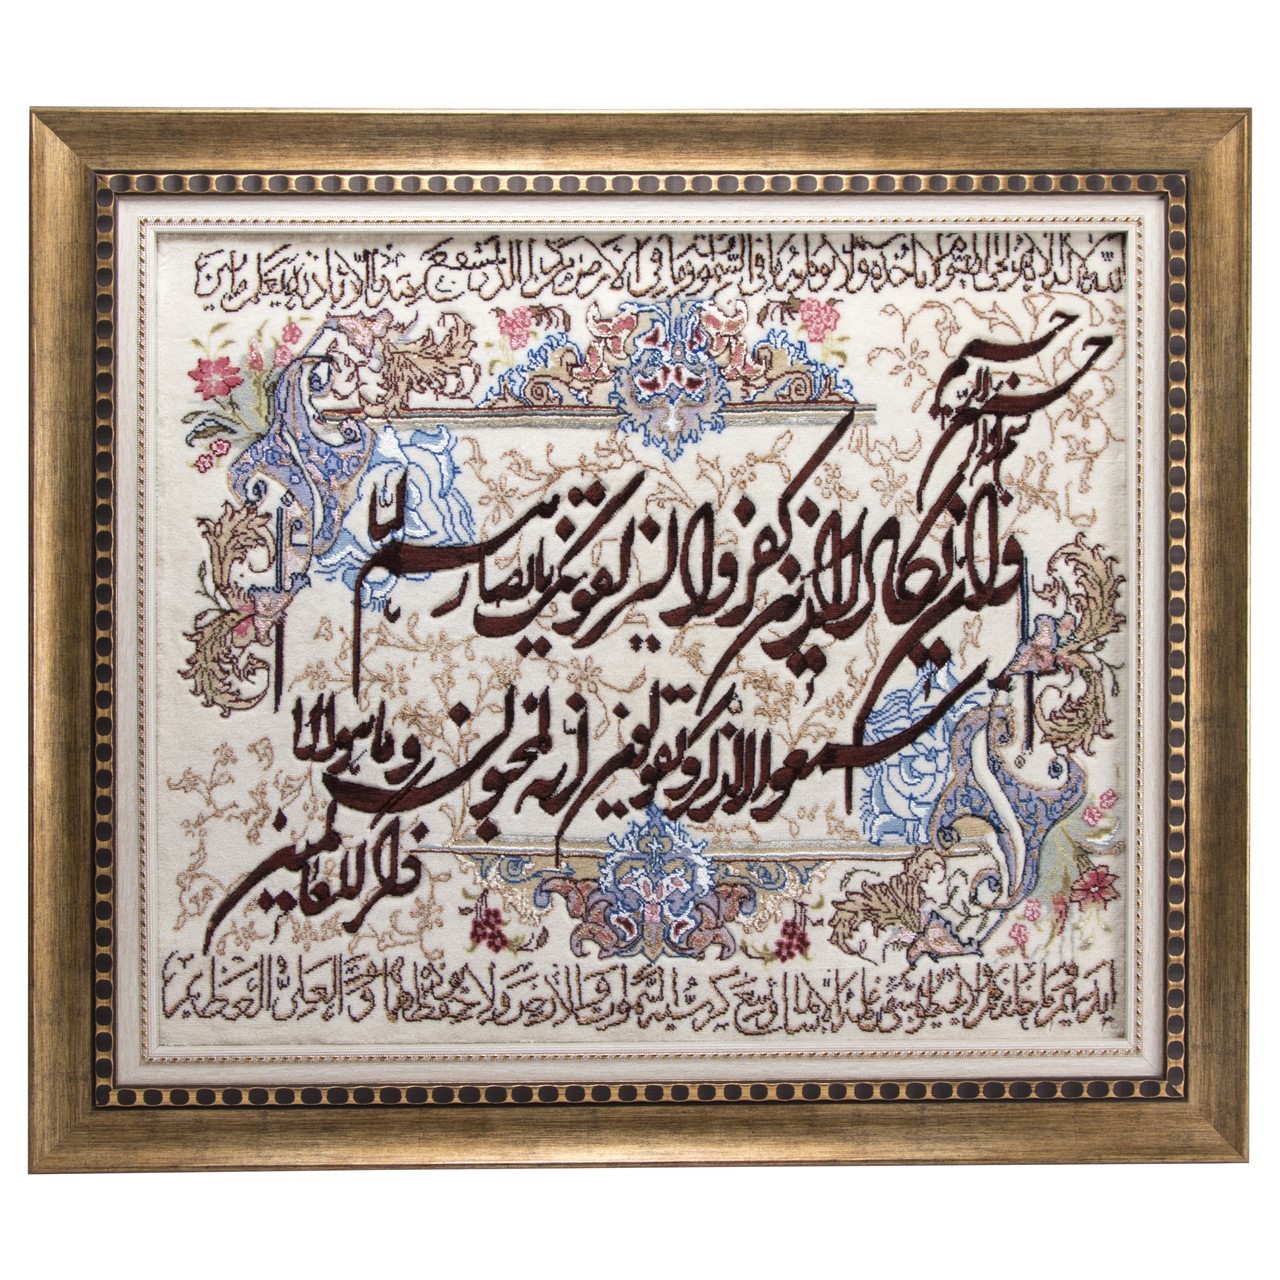 الله لا إله إلا هو الحي القيوم لا تأخذه سنة ولا نوم له ما في السموات وما في الأرض من ذا الذي يشفع عنده إلا بإذنه يعلم ما بين
بسم الله الرحمن الرحيم
وان يكاد الذين كفروا ليزلقونك بابصارهم لما
سمعوا الذكر و يقولون انه لمجنون و ما هو الا
ذكر للعالمين
أيديهم وما خلفهم ولا يحيطون بشيء من علمه إلا بما شاء وسع كرسيه السموات والأرض ولا يؤده حفظهما وهو العلي العظيم